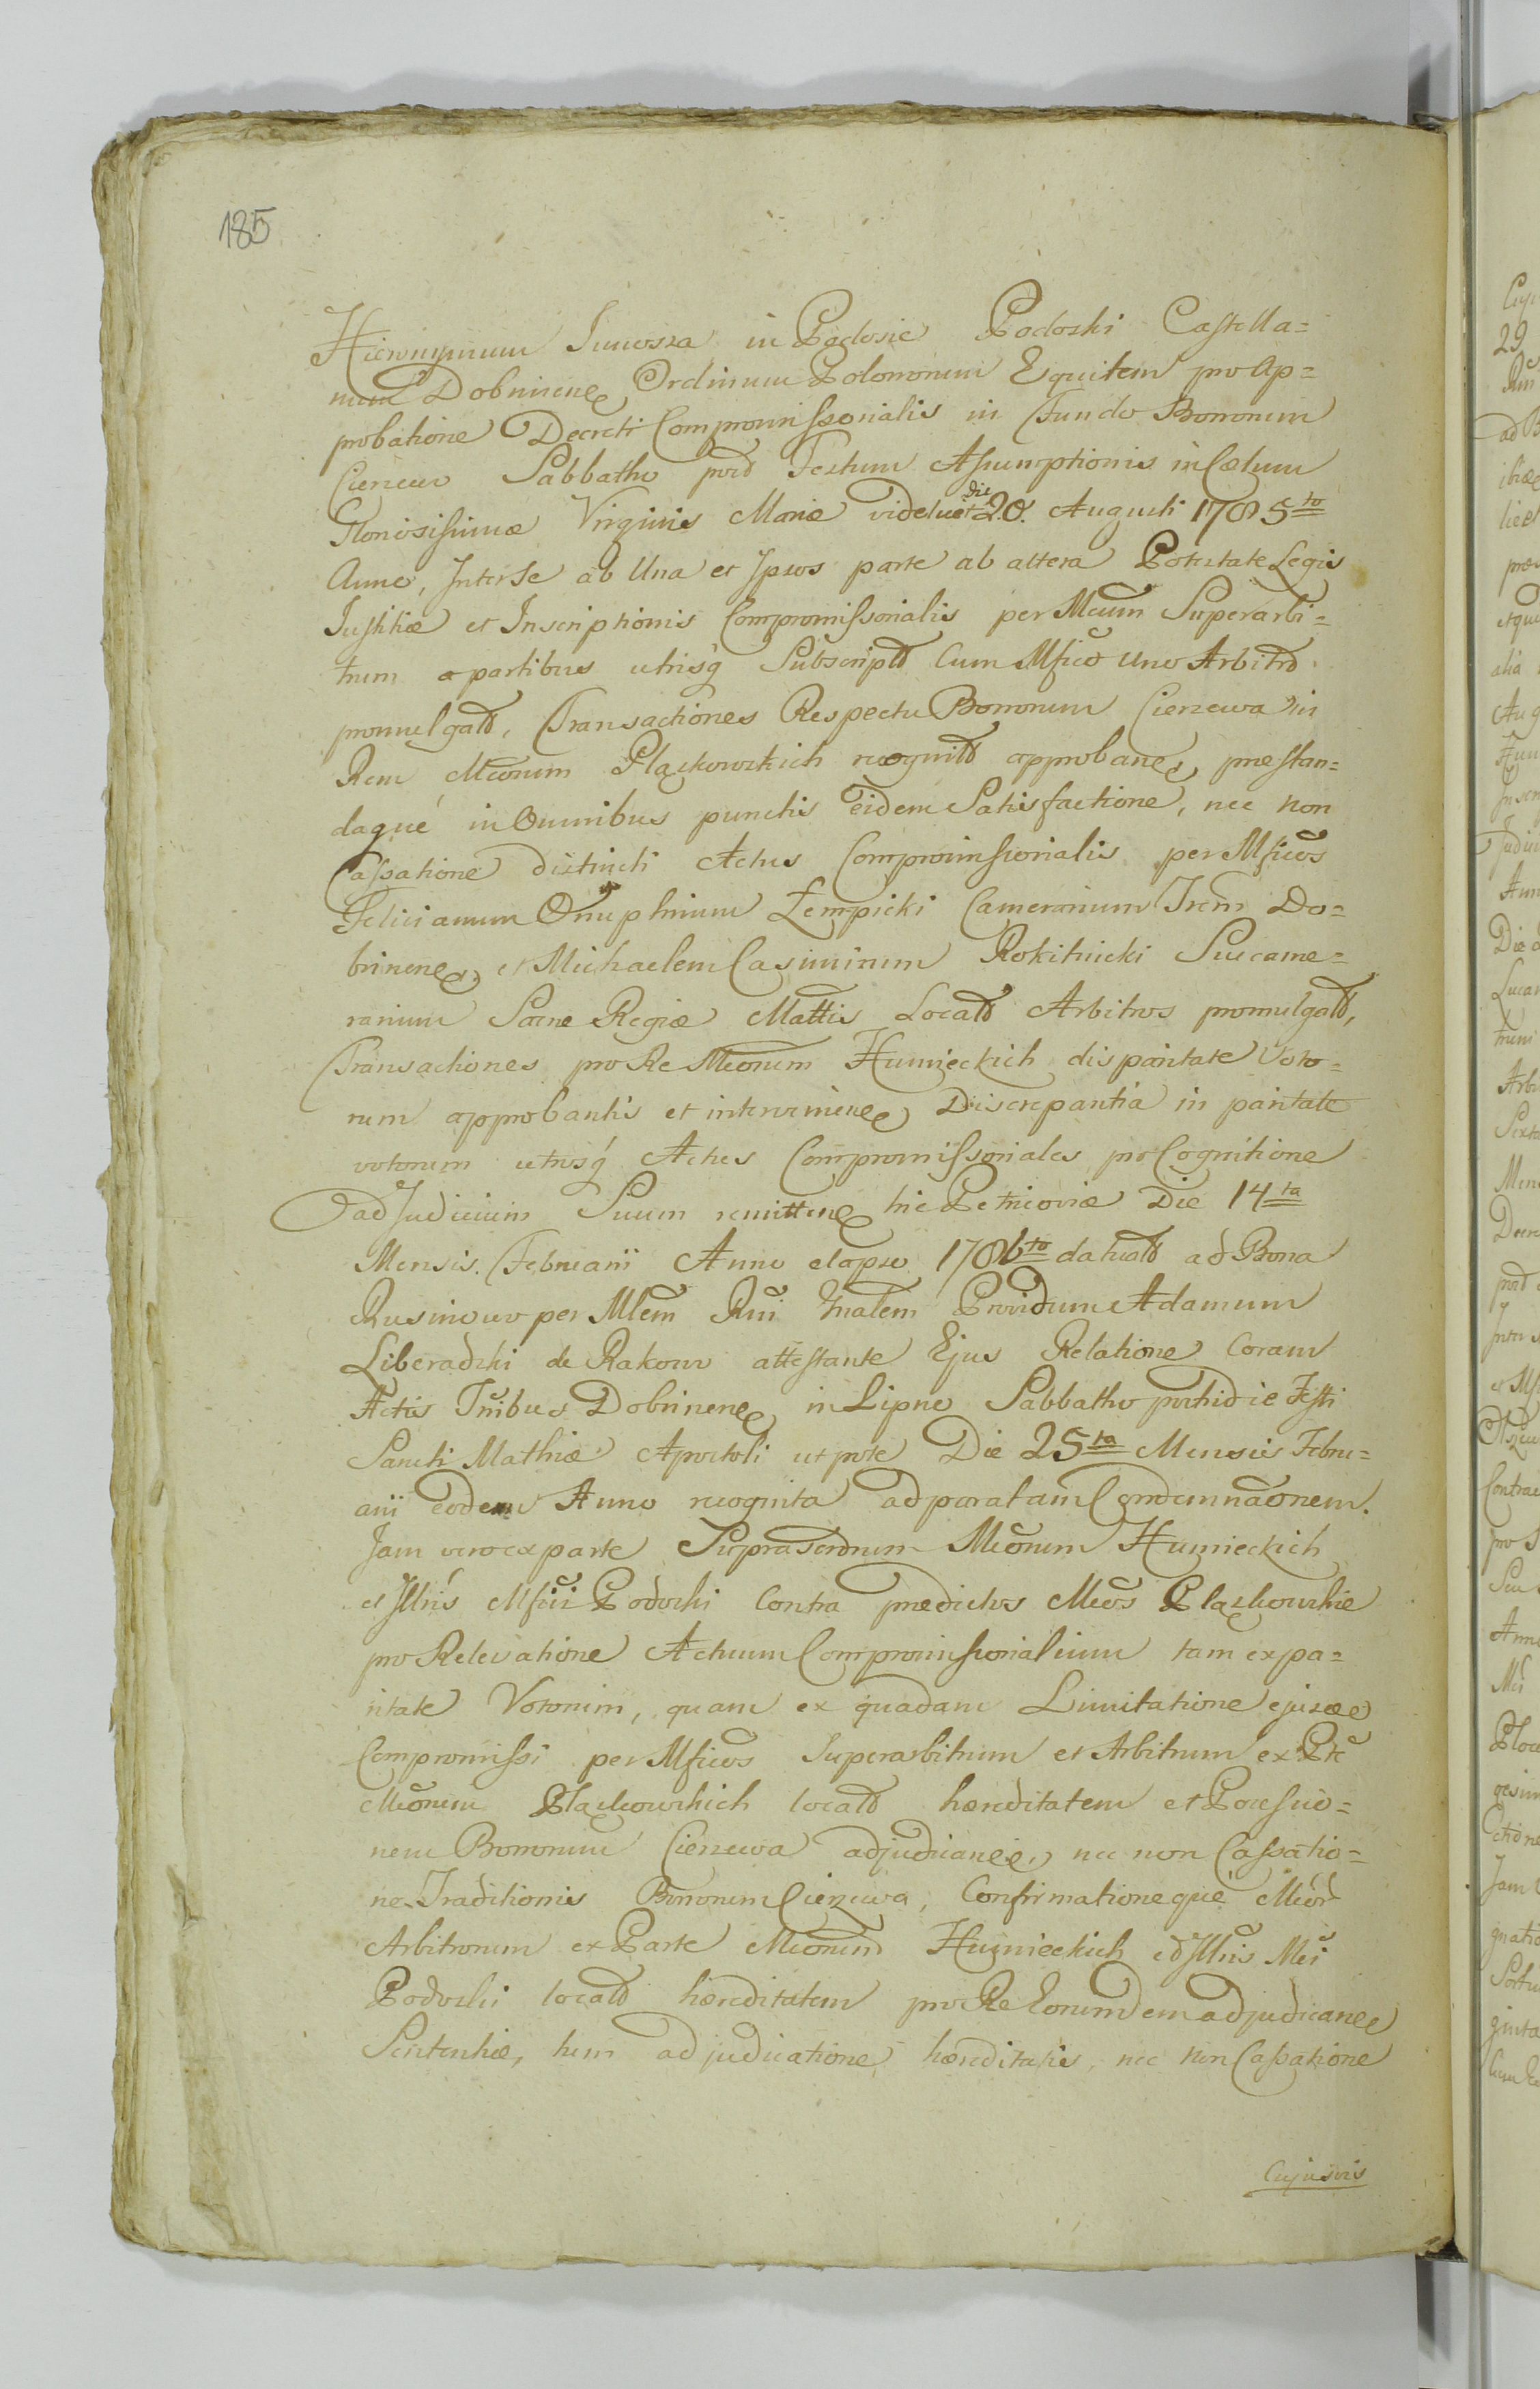 185
Hieronymum Junosza in Podosie Podoski Castella=
num Dobrinens Ordinum Polonorum Equitem pro Ap=
probatione Decreti Compromissorialis in Fundo Bonorum
Cierzewo Sabbatho post Festum Assumptionis in Cœlum
Gloriosissimæ Virginis Mariæ videlicet die 20. Augusti 1785to
Anno, Inter Se ab Una et Ipsos parte ab altera Potestate Legis
Justitiæ et Inscriptionis Compromissorialis per Mcum Superarbi=
trum a partibus utrisq Subscript Cum Mfico uno Arbitro
promulgat, Transactiones Respectu Bonorum Cierzewa in
Rem Mcorum Pląckowskich recognit approbans, præstan=
daque in Omnibus punctis eidem Satisfactione, nec non
Cassatione distincti Actus Compromissorialis per Mficos
Felicianum Onuphrium Łempicki Camerarium Trem Do=
brinens, et Michaelem Casimirum Rokitnicki Succame=
rarium Sacræ Regiæ Mattis Locat Arbitros promulgat,
Transactiones pro Re Mcorum Humięckich disparitate Voto=
rum approbantis et interveniens Discrepantia in paritate
votorum utrosq Actus Compromissoriales pro Cognitione
ad Judicium Suum remittens hic Petricoviæ Die 14ta
Mensis Februarii Anno elapso 1786to ad Bona
Rusinowo per Mlem Rni Gnalem Providum Adamum
Liberadzki de Rakowo attestante Ejus Relatione Coram
Actis Tribus Dobrinens in Lipno Sabbatho posthidie Festi
Sancti Mathiæ Apostoli utpote Die 25ta Mensis Febru=
arii eodem Anno recognita ad paratam Condemnaonem.
Jam vero ex parte Mcorum Humięckich
et Illris Mfici Podoski Contra prædictos Mcos Pląckowskie
pro Relevatione Actuum Compromissorialium tam ex pa=
ritate Votorum, quam ex quadam Limitatione
Compromissi per Mficos Superarbitrum et Arbitrum ex Pte
Mcorum Pląckowskich locat hæreditatem et Possessio=
nem Bonorum Cierzewa adjudicans, nec non Cassatio=
ne Traditionis Bonorum Cierzewa, Confirmationeque Mcor
Arbitrorum ex Parte Mcorum Humięckich et Illris Mci
Podoski locat hæreditatem pro Re Eorumdem adjudicans
Sententiæ, tum adjudicatione hæreditatis, nec non Cassatione
Cujusvis